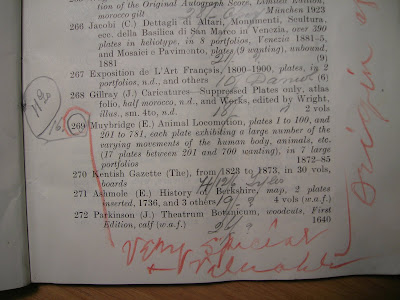 tion of the Original Autograph Score, Limited Edition,
morocco gilt München 1923
266 Jacobi (C.) Dettagli di Altari, Monumenti, Scultura,
ecc. della Basilica di San Marco in Venezia, over 390
plates in heliotype, in 8 portfolios, Venezia 1881-5,
and Mosaici e Pavimento, plates (9 wanting), unbound,
1881 (9)
267 Exposition de L'Art Français, 1800-1900, plates, in 2
portfolios, n.d., and others (6)
268 Gillray (J.) Caricatures—Suppressed Plates only, atlas
folio, half morocco, n.d., and Works, edited by Wright,
illus., sm. 4to, n.d. 2 vols
269 Muybridge (E.) Animal Locomotion, plates 1 to 100, and
201 to 781, each plate exhibiting a large number of the
varying movements of the human body, animals, etc.
(17 plates between 201 and 700 wanting), in 7 large
portfolios 1872-85
270 Kentish Gazette (The), from 1823 to 1873, in 30 vols,
boards
271 Ashmole (E.) History of Berkshire, map, 2 plates
inserted, 1736, and 3 others 19/- 4 vols (w.a.f.)
272 Parkinson (J.) Theatrum Botanicum, woodcuts, First
Edition, calf (w.a.f.) 1640
Very special
+ Valuable